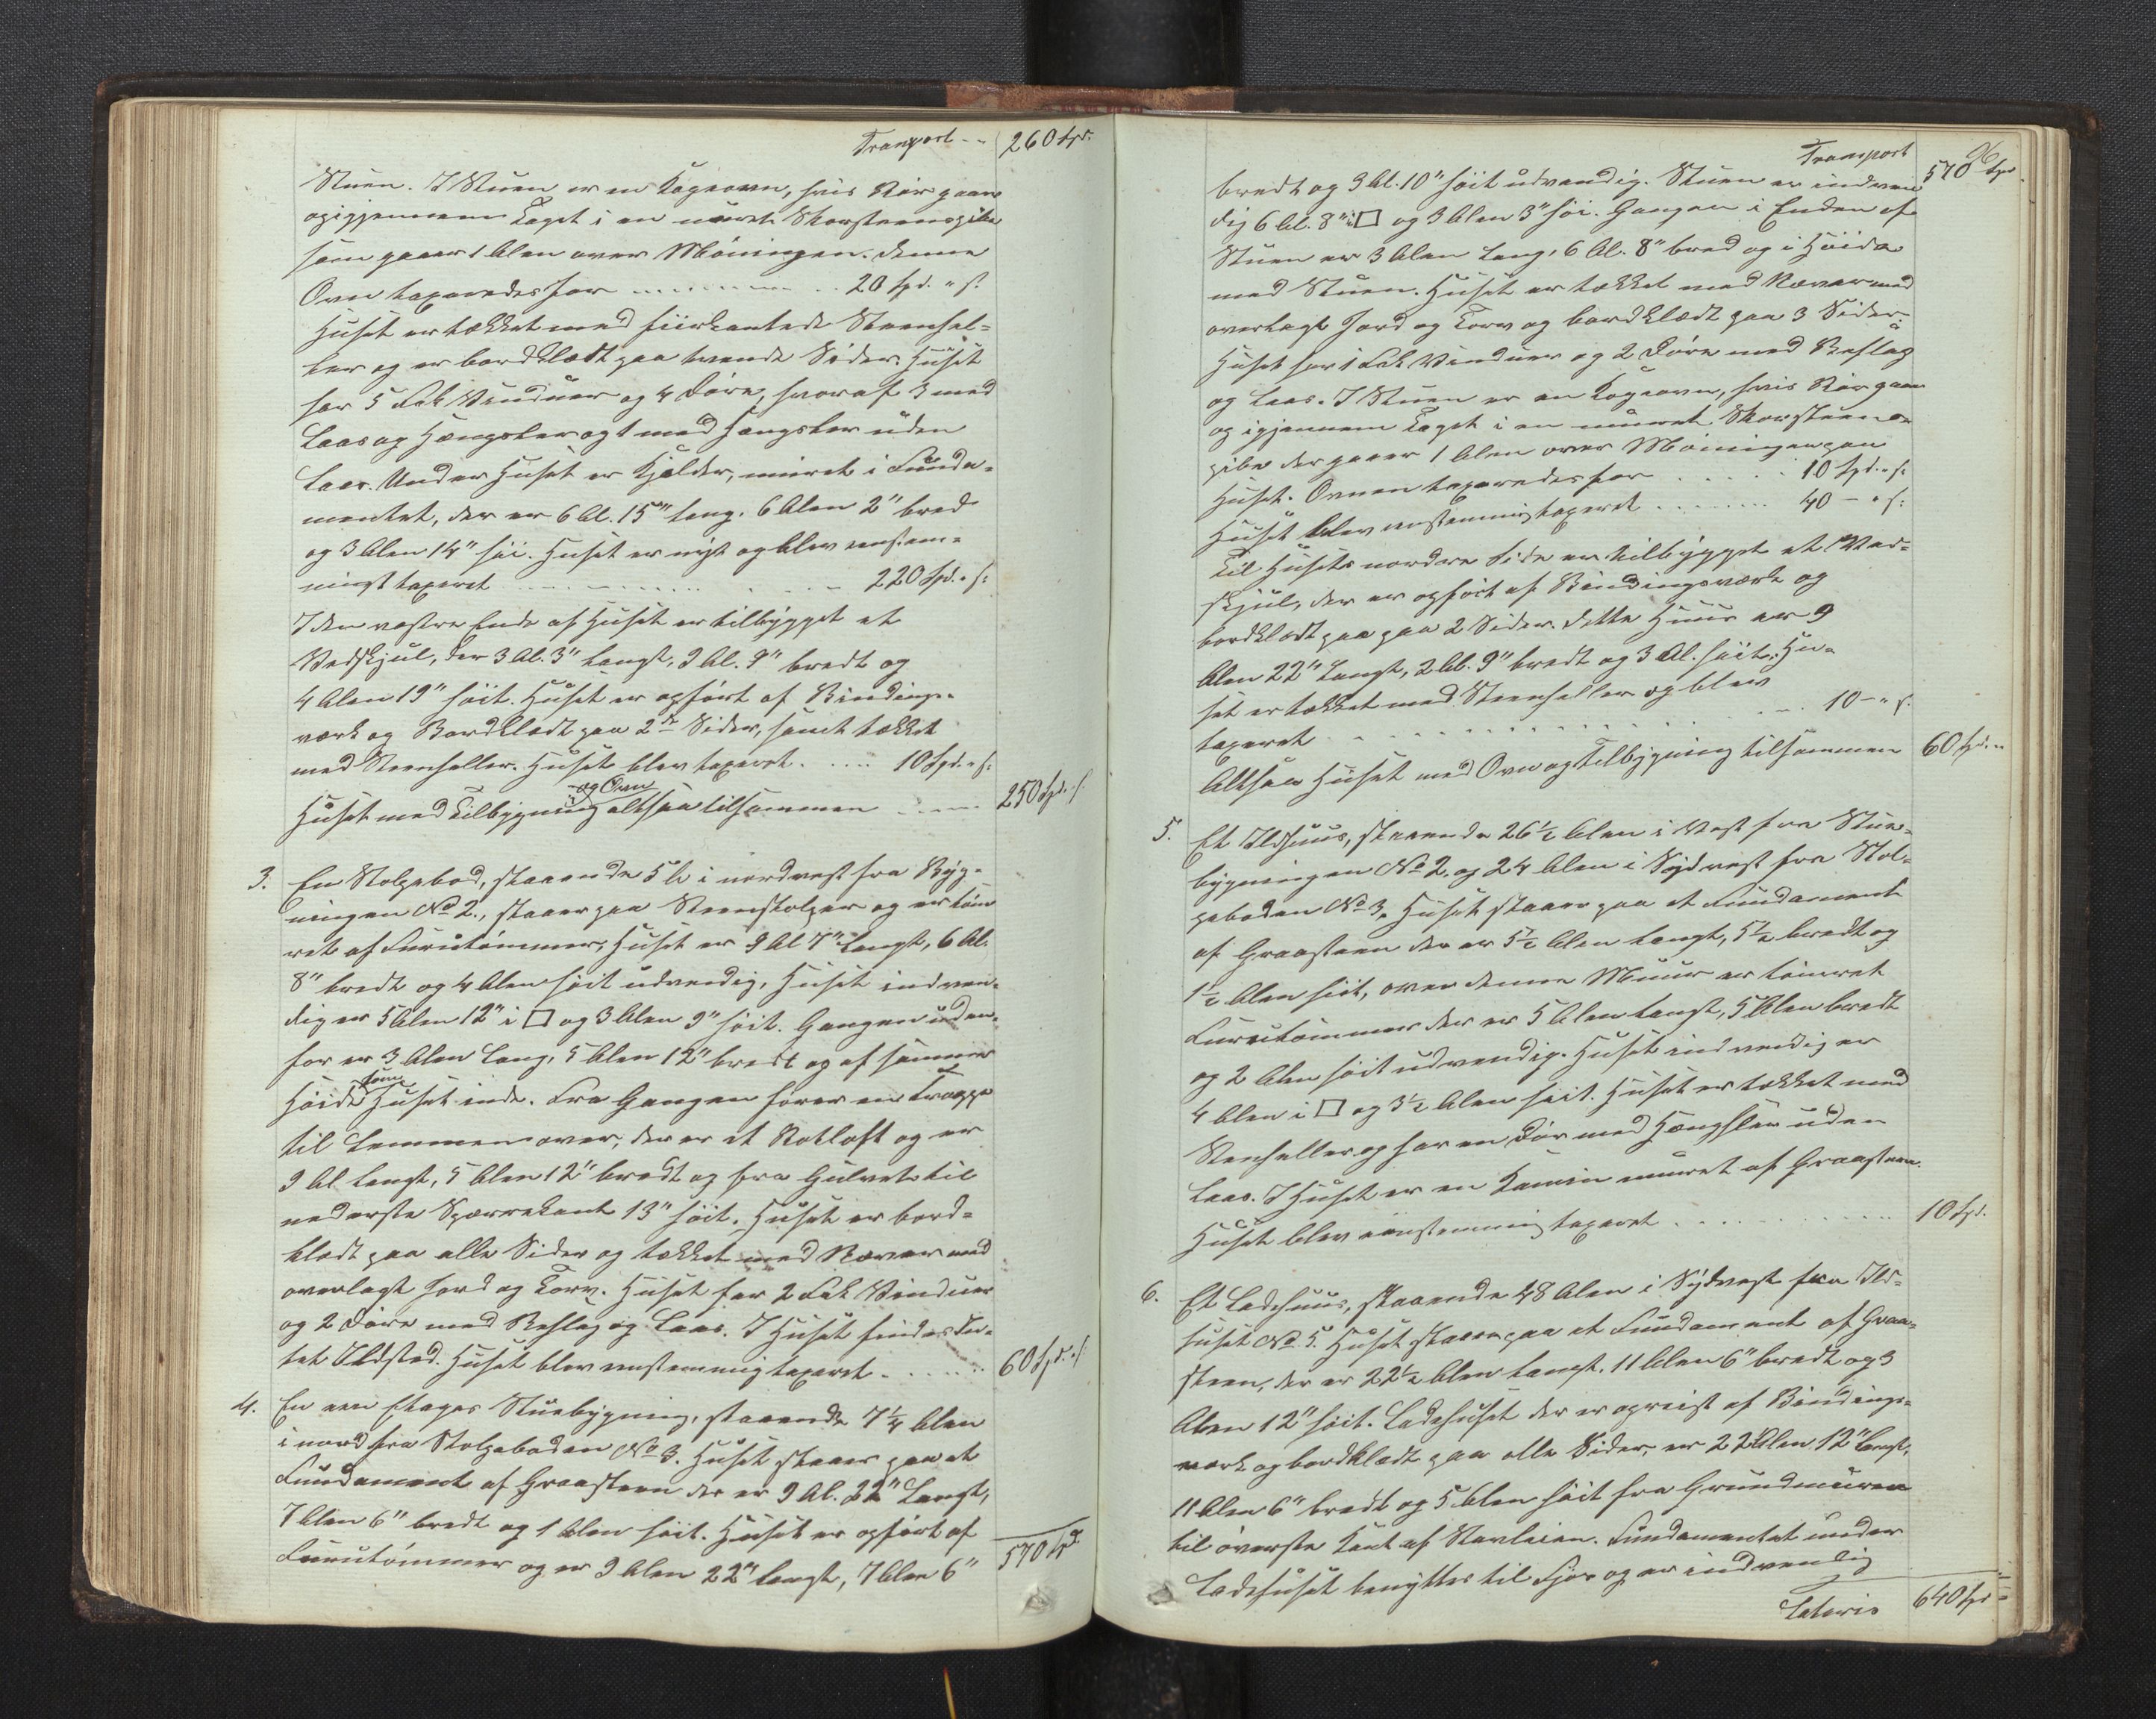 Transport -- 260 Spd.
Stuen. I Stuen er en Kogeovn, hvis Rør gaar
op igjennem Taget i en muret Skorsteenspibe
som gaaer 1 Alen over Møningen. Denne
Ovn taxeredes for 20 Spd. " s.
Huset er tækket med fiirkantede Steenhel-
ler og er bordklædt paa tvende Sider. Huset
har 5 Fak Vinduer og 4 Døre, hvoraf 3 med
Laas og Hængsler og 1 med Hængsler uden
Laas. Under Huset er Kjelder, muret i Funda-
mentet, der er 6 Al. 15" lang, 6 Alen 2" bred
og 3 Alen 14" høi. Huset er nyt og blev eenstem-
migt taxeret 220 Spd. " s:
I den vestre Ende af Huset er tilbygget et
Vedskjul, der 3 Al. 3" langt, 9 Al. 9" bredt og
4 Alen 19" høit. Huset er opført af Bindings-
værk og Bordklædt paa 2de Sider, samt tækket
med Steenheller. Huset blev taxeret 10 Spd. " s:
og Ovn
Huset med Tilbygning altsaa tilsammen 250 Spd. " s
3. En Stolpebod, staaende 5 Al i nordvest fra Byg-
ningen No 2., staaer paa Steenstolper og er tøm
ret af Furutømmer, Huset er 9 Al 7" langt, 6 Al.
8" bredt og 4 Alen høit udvendig, Huset indven-
dig er 5 Alen 12" i □ og 3 Alen 9" høit. Gangen uden-
for er 3 Alen lang, 5 Alen 12" bredt og af samme
som
Høide Huset inde. Fra Gangen fører en Trappe
til Lemmen over, der er et Rotloft og er
9 Al langt, 5 Alen 12" bredt og fra Gulvet til
nederste Sparrekant 13" høit. Huset er bord-
klædt paa alle Sider og tækket med Næver med
overlagt Jord og Torv. Huset har 2 Fak Vinduer
og 2 Døre med Beslag og Laas. I Huset findes In-
tet Ildsted. Huset blev enstemmig taxeret 60 Spd. " s
4. En een Etages Stuebygning, staaende 7 1/4 Alen
i nord fra Stolpeboden No 3. Huset staaer paa et
Fundament af Graasteen der er 9 Al. 22" langt,
7 Alen 6" bredt og 1 Alen høit. Huset er opført af
Furutømmer og er 9 Alen 22" langt, 7 Alen 6" 570 Spd
96
Transport 570 Spd
bredt og 3 Al. 10" høit udvendig. Stuen er indven
dig 6 Al. 8" i □ og 3 Alen 3" høi. Gangen i Enden af
Stuen er 3 Alen lang, 6 Al. 8" bred og i Høide
med Stuen. Huset er tækket med Næver med
overlagt Jord og Torv og bordklædt paa 3 Sider.
Huset har 1 Fak Vinduer og 2 Døre med Beslag
og Laas. I Stuen er en Kogeovn, hvis Rør gaar
op igjennem Taget i en muret Skorsteens-
pibe der gaaer 1 Alen over Møningen paa
Huset. Ovnen taxeredes for 10 Spd. " s:
Huset blev eenstemmig taxeret 40 – " s:
Til Husets nordre Side er tilbygget et Ved-
skjul, der er opført af Bindingsværk og
bordklædt paa paa 2 Sider. Dette Huus er 9
Alen 22" langt, 2 Al. 9" bredt og 3 Al. høit. Hu-
set er tækket med Steenheller og blev
taxeret 10 – " s.
Altsaa Huset med Ovn og Tilbygning tilsammen 60 Spd. "
5. Et Ildhuus, staaende 26 1/2 Alen i Vest fra Stue-
bygningen No 2. og 24 Alen i Sydvest fra Stol-
peboden No 3. Huset staaer paa et Fundament
af Graasteen der er 5 1/2 Alen langt, 5 1/2 bredt og
1 1/2 Alen høit, over denne Muur er tømret
Furutømmer der er 5 Alen langt, 5 Alen bredt
og 2 Alen høit udvendig. Huset indvendig er
4 Alen i □ og 3 1/2 Alen høit. Huset er tækket med
Steenheller og har en Dør med Hængsler uden
Laas. I Huset er en Kamin muret af Graasteen.
Huset blev eenstemmig taxeret 10 Spd.
6. Et Ladehuus, staaende 48 Alen i Sydvest fra Ild-
huset No 5. Huset staaer paa et Fundament af Graa-
steen, der er 22 1/2 Alen langt, 11 Alen 6" bredt og 3
Alen 12" høit. Ladehuset der er opreist af Bindings-
værk og bordklædt paa alle Sider, er 22 Alen 12" langt,
11 Alen 6" bredt og 5 Alen høit fra Grundmuren
til øverste Kant af Stavleien. Fundamentet under
Ladehuset benyttes til Fjøs og er indvendig
Lateris 640 Spd